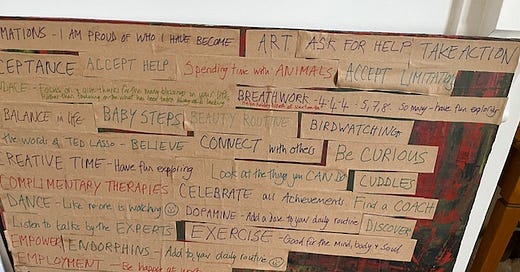 MATIONS - I AM PROUD OF WHO I HAVE BECOME
ART
ASK FOR HELP
TAKE ACTION
CEPTANCE
ACCEPT HELP
Spending time with ANIMALS
ACCEPT LIMITATIONS
DANCE - Focus on & give thanks for the many blessings in your life,
Rather than focusing on what has been taken away or is lacking
BREATHWORK - 4.4.4 - 5,7,8. So many - have fun exploring
BALANCE in life
BABY STEPS
BEAUTY ROUTINE
BIRDWATCHING
the words of TED LASSO - BELIEVE
CONNECT with others
Be CURIOUS
CREATIVE TIME - Have fun exploring
Look at the things you CAN DO
CUDDLES
COMPLIMENTARY THERAPIES
CELEBRATE all Achievements.
Find a COACH
DANCE - Like no one is watching
DOPAMINE - Add a dose to your daily routine
DISCOVER
Listen to talks by the EXPERTS
EXERCISE - Good for the Mind, body & Soul
EMPOWER
ENDORPHINS - Add to your daily routine
EMPLOYMENT - Be happy at work